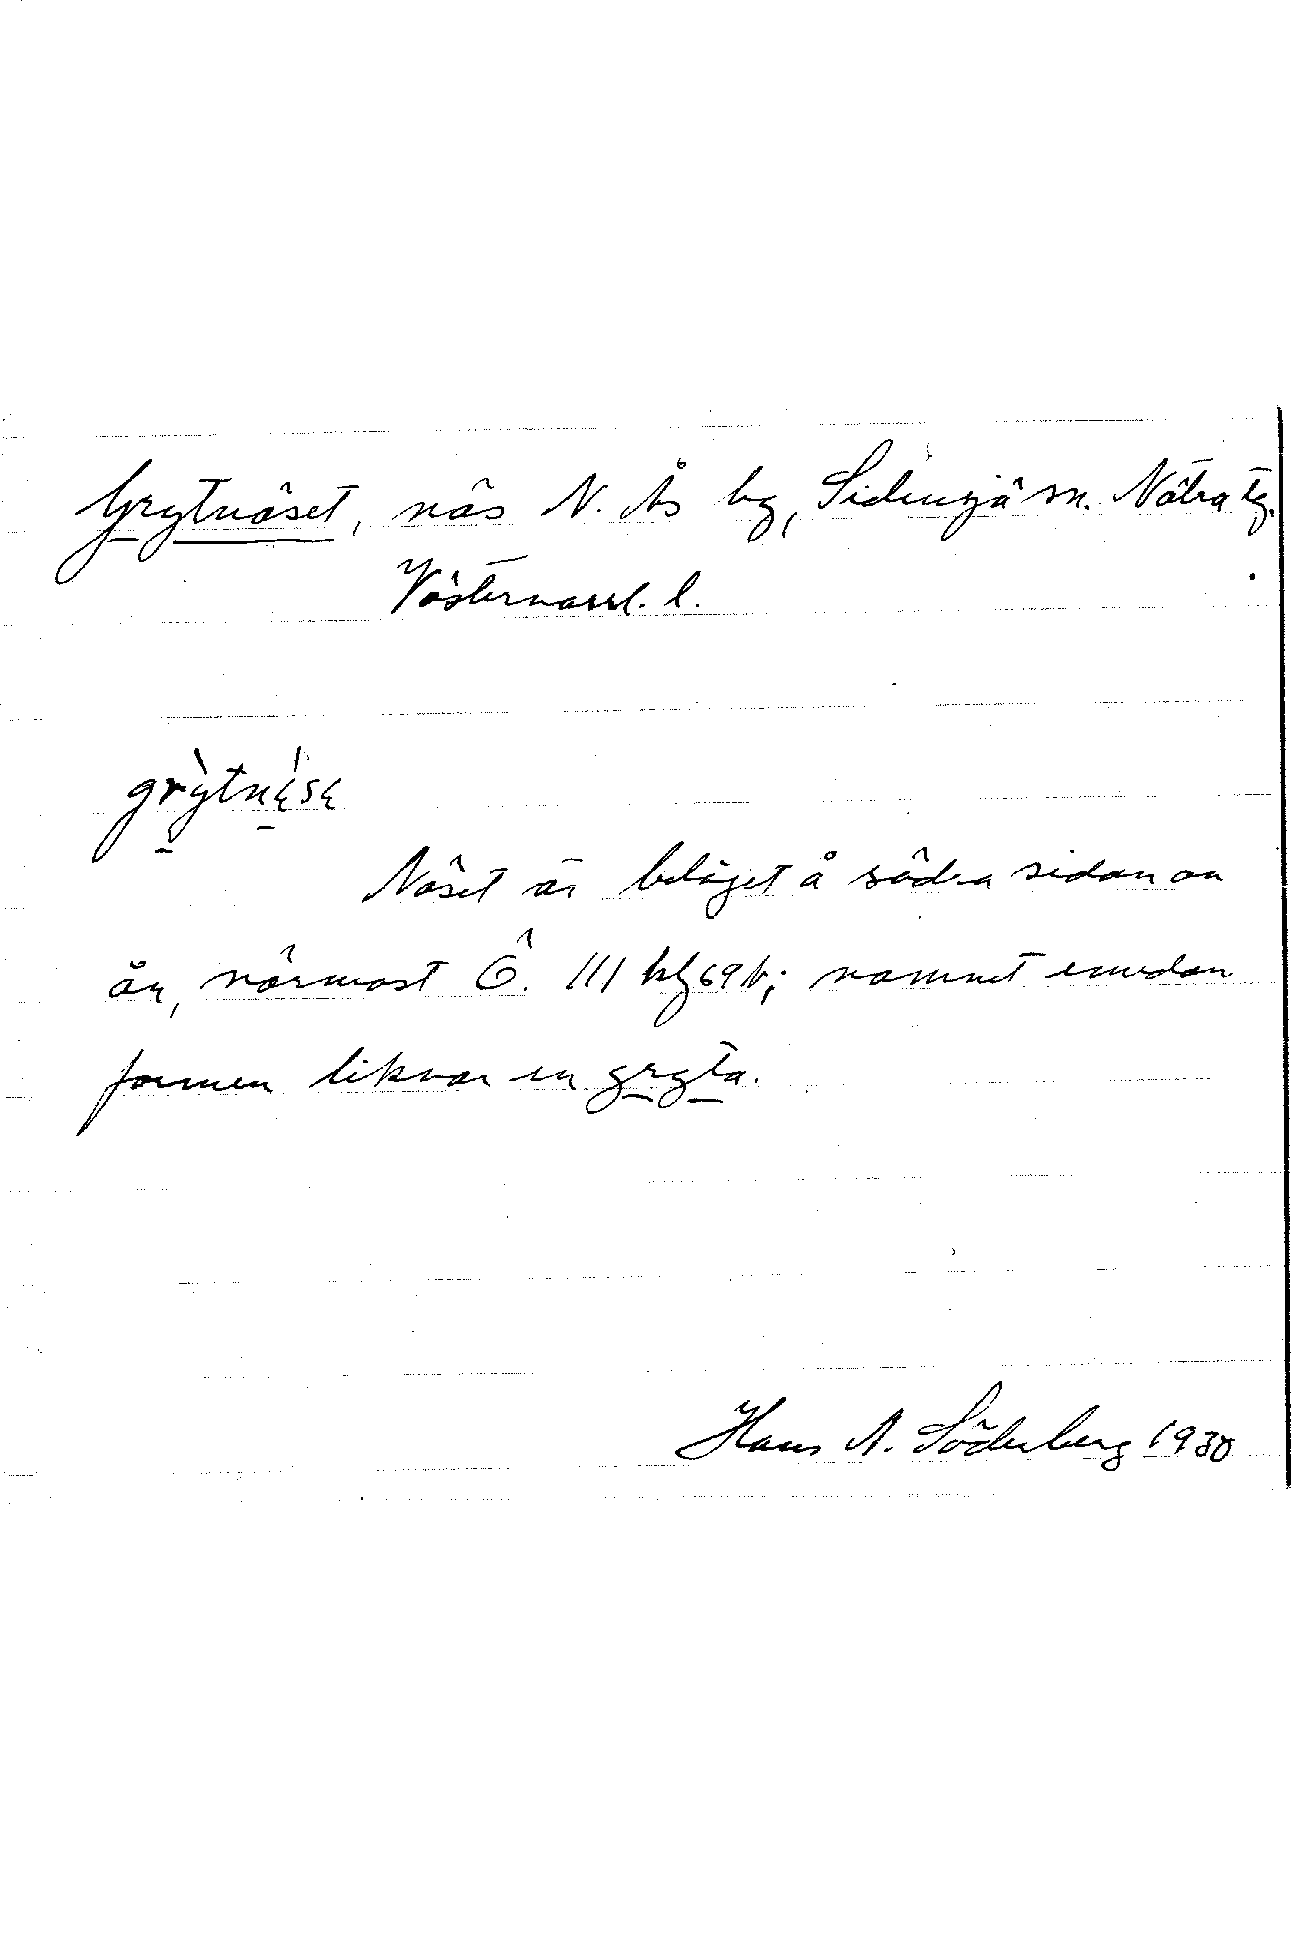 Grytnäset, näs N. Ås by, Sidensjö sn. Nätra tg.
Västernorrl. l.
grytnɛsɛ
Näset är beläget å södra sidan av
ån, närmast Ö. III; namnet emedan
formen liknar en gryta.
Hans A. Söderberg 1930